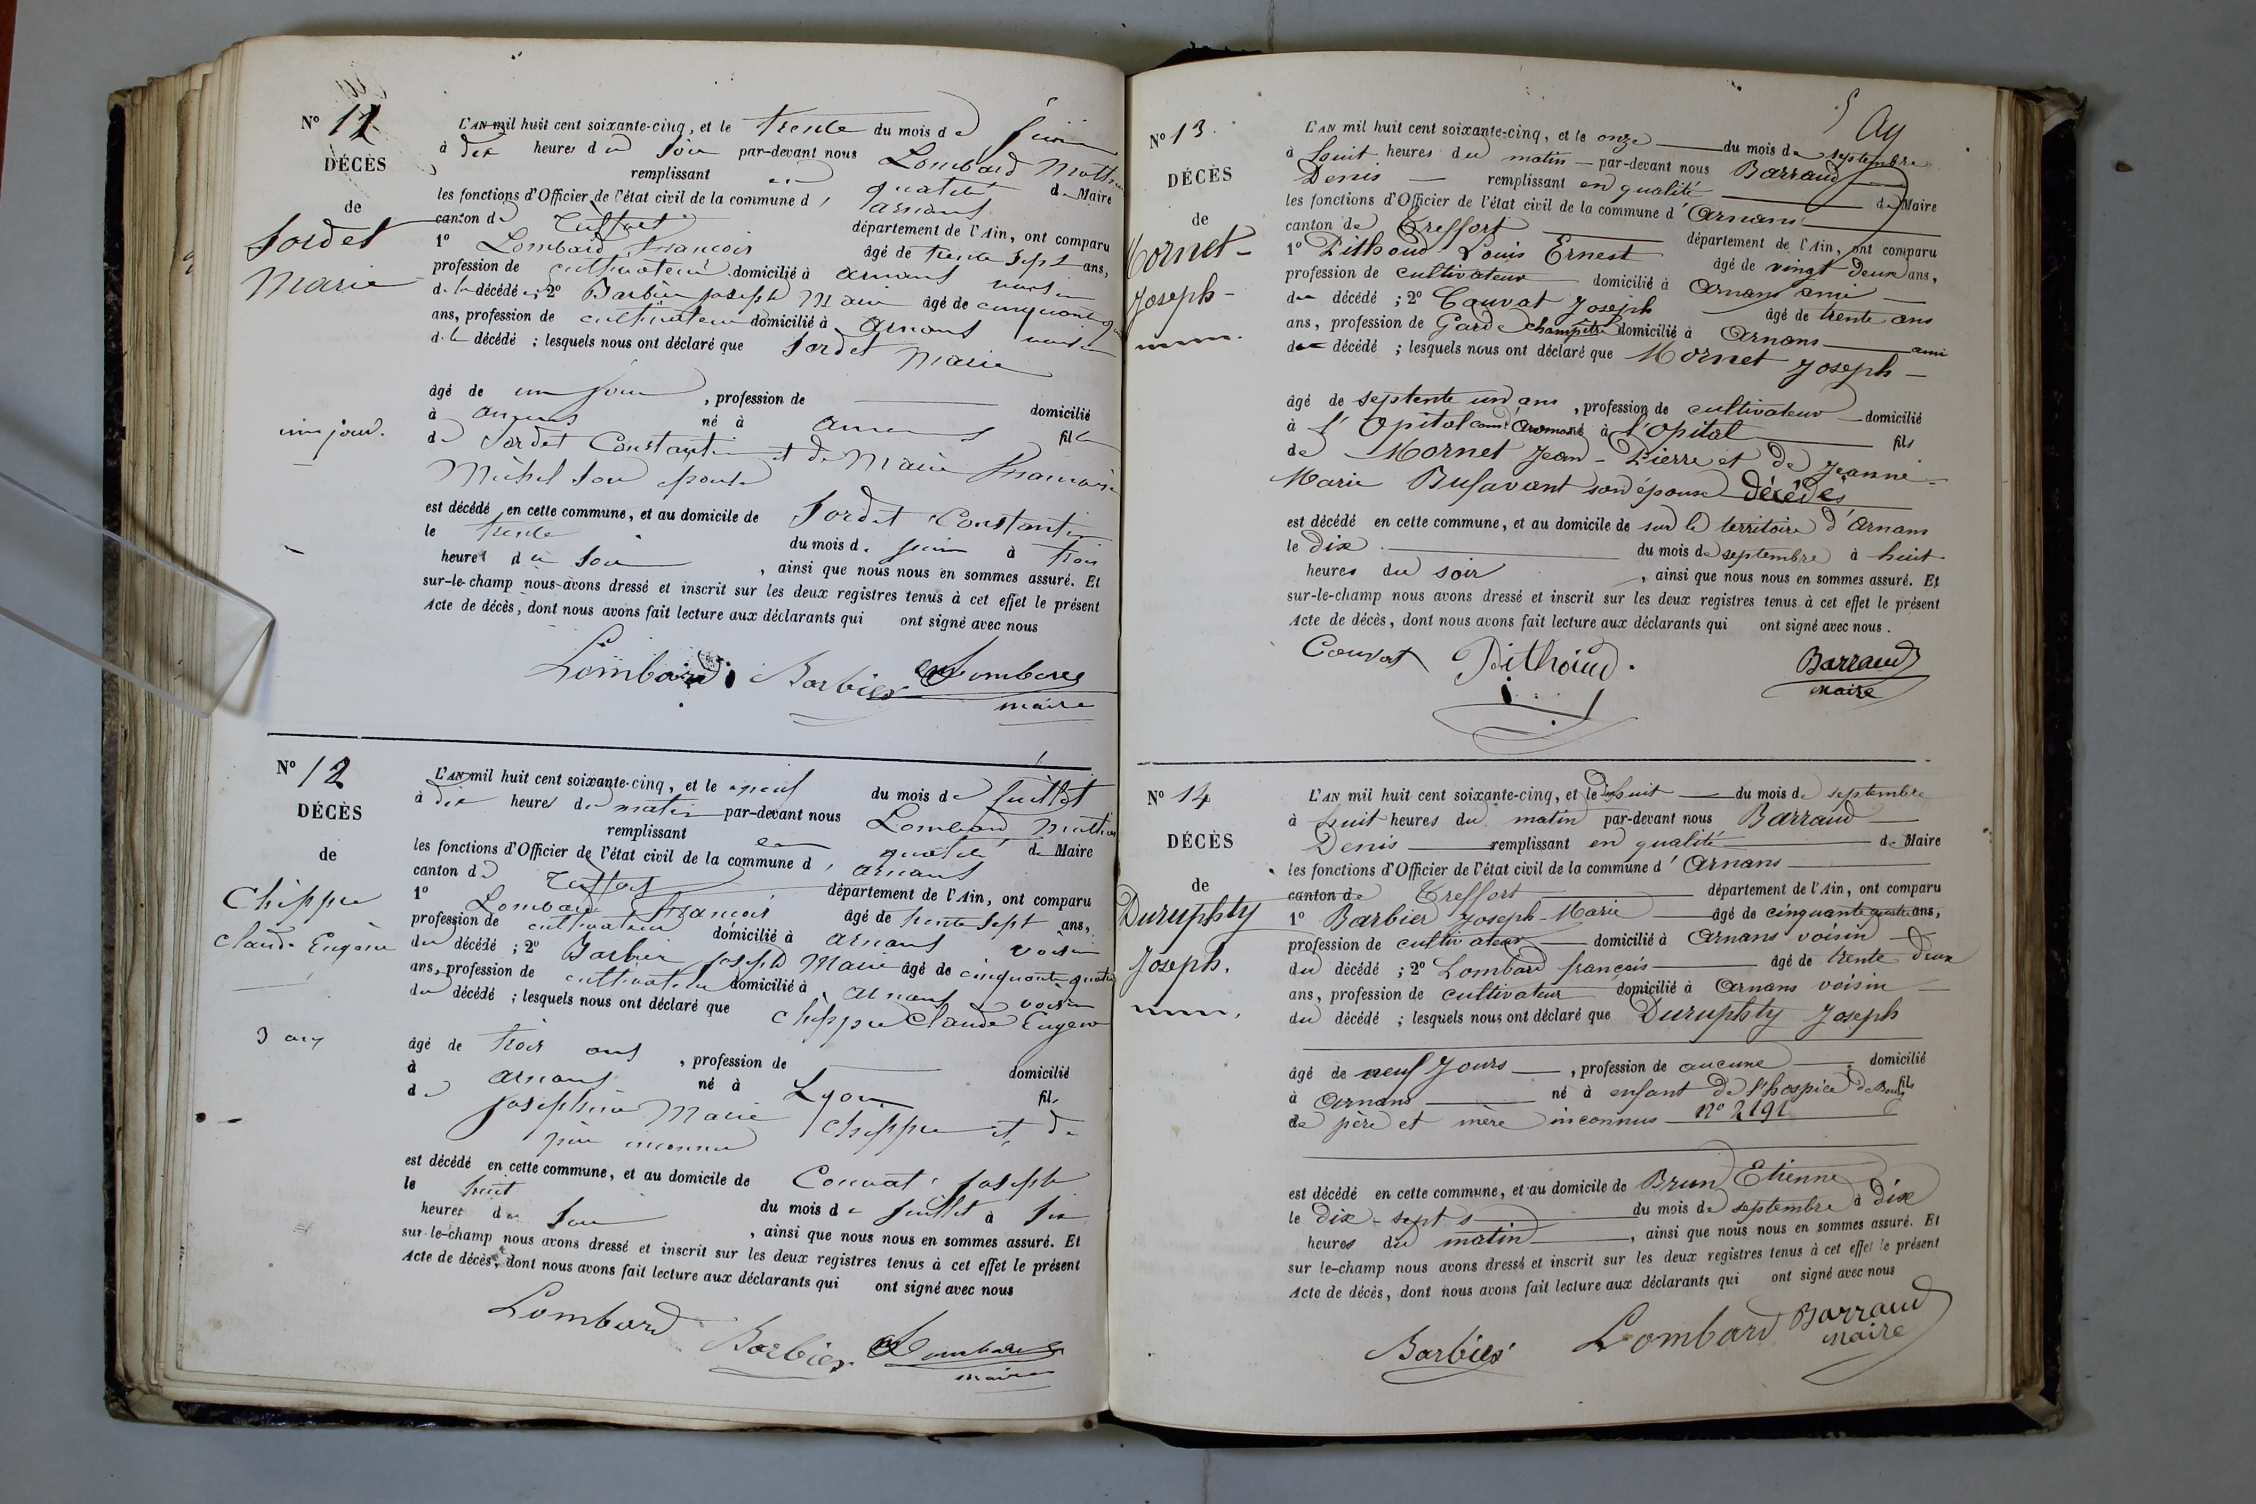 N° 11
DÉCÈS
de
Sordet
Marie
un jour.
L'AN mil huit cent soixante-cinq, et le trente du mois de Juin
à dix heures du soir par-devant nous Lombard Mathieu
remplissant en qualité de Maire
les fonctions d'Officier de l'état civil de la commune d' arnans
canton de Treffort département de l'Ain, ont comparu
1° Lombard François âgé de trente sept ans,
profession de cultivateur domicilié à arnans voisin
de la décédée; 2° Barbier joseph Marie âgé de cinquante
ans, profession de cultivateur domicilié à Arnans voisin
de la décédé ; lesquels nous ont déclaré que Sordet
Marie
âgé de un jour , profession de domicilié
à arnans né à arnans fille
de Sordet Constantin et de Marie Françoise
Michel son épouse
est décédé en cette commune, et au domicile de Sordet Constantin
le trente du mois de juin à trois
heures du soir , ainsi que nous nous en sommes assuré. Et
sur-le-champ nous avons dressé et inscrit sur les deux registres tenus à cet effet le présent
Acte de décès, dont nous avons fait lecture aux déclarants qui ont signé avec nous
Lombard Barbier Lombard
maire
N° 12
DÉCÈS
de
Chippre
Claude Eugène
3 ans
L'AN mil huit cent soixante-cinq, et le neuf du mois de juillet
à dix heures du matin par-devant nous Lombard Mathieu
remplissant en qualité de Maire
les fonctions d'Officier de l'état civil de la commune d' arnans
canton de Treffort département de l'Ain, ont comparu
1° Lombard François âgé de trente sept ans,
profession de cultivateur domicilié à arnans voisin
du décédé ; 2° Barbier joseph Marie âgé de cinquante quatre
ans, profession de cultivateur domicilié à arnans voisin
du décédé ; lesquels nous ont déclaré que Chippre Claude Eugène
âgé de trois ans , profession de domicilié
à arnans né à Lyon fils
de josephine Marie Chippre et de
père inconnu
est décédé en cette commune, et au domicile de Couvat joseph
le huit du mois de juillet à six
heures du soir , ainsi que nous nous en sommes assuré. Et
sur-le-champ nous avons dressé et inscrit sur les deux registres tenus à cet effet le présent
Acte de décès, dont nous avons fait lecture aux déclarants qui ont signé avec nous
Lombard Barbier Lombard
maire
N° 13
DÉCÈS
de
Mornet
Joseph
L'AN mil huit cent soixante-cinq, et le onze du mois de septembre
à huit heures du matin par-devant nous Barraud
Denis remplissant en qualité de Maire
les fonctions d'Officier de l'état civil de la commune d' Arnans
canton de Treffort département de l'Ain, ont comparu
1° Pithoud Louis Ernest âgé de vingt deux ans,
profession de cultivateur domicilié à Arnans ami
du décédé ; 2° Couvat Joseph âgé de trente ans
ans, profession de Garde champêtre domicilié à Arnans ami
du décédé ; lesquels nous ont déclaré que Mornet Joseph
âgé de septente un ans , profession de cultivateur domicilié
à l'Opital né à l'Opital fils
de Mornet Jean-Pierre et de Jeanne
Marie Busavant son épouse décédés
est décédé en cette commune, et au domicile de sur le territoire d'Arnans
le dix du mois de septembre à huit
heures du soir , ainsi que nous nous en sommes assuré. Et
sur-le-champ nous avons dressé et inscrit sur les deux registres tenus à cet effet le présent
Acte de décès, dont nous avons fait lecture aux déclarants qui ont signé avec nous.
Couvat Pithoud. Barraud
maire
N° 14
DÉCÈS
de
Duruphty
Joseph.
L'AN mil huit cent soixante-cinq, et le dix huit du mois de septembre
à huit heures du matin par-devant nous Barraud
Denis remplissant en qualité de Maire
les fonctions d'Officier de l'état civil de la commune d' Arnans
canton de Treffort département de l'Ain, ont comparu
1° Barbier Joseph-Marie âgé de cinquante quatre ans,
profession de cultivateur domicilié à Arnans voisin
du décédé ; 2° Lombard françois âgé de trente deux
ans, profession de cultivateur domicilié à Arnans voisin
du décédé ; lesquels nous ont déclaré que Duruphty Joseph
âgé de neuf Jours , profession de aucune domicilié
à Arnans né à enfant de l'hospice de Bourg fils
de père et mère inconnus n° 2191
est décédé en cette commune, et au domicile de Brun Etienne
le Dix-sept du mois de septembre à dix
heures du matin , ainsi que nous nous en sommes assuré. Et
sur le-champ nous avons dressé et inscrit sur les deux registres tenus à cet effet le présent
Acte de décès, dont nous avons fait lecture aux déclarants qui ont signé avec nous
Barbier Lombard Barraud
maire